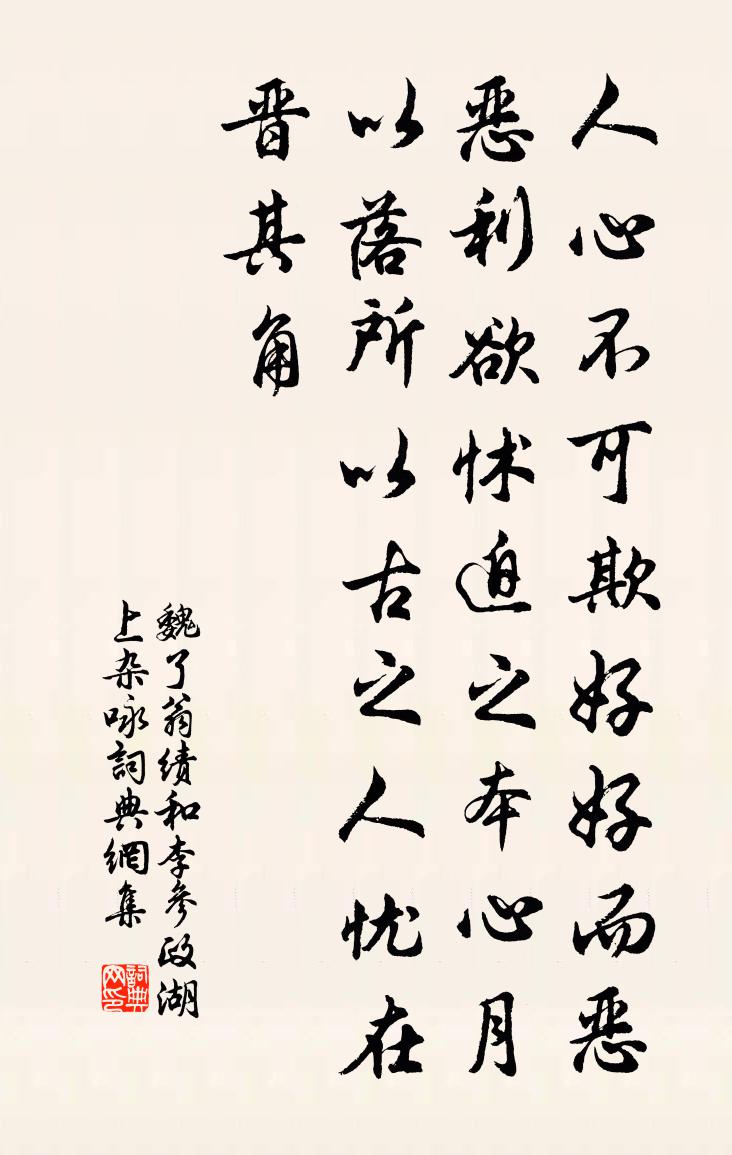 人心不可欺好好而恶
恶利欲怵迫之本心月
以落所以古之人忧在
晋其角
魏了翁绩和李参政湖
上杂咏詞典網集
詞典网印